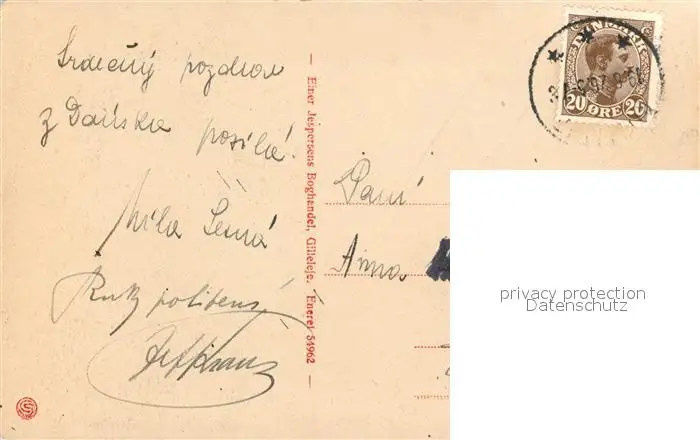 Srdečný pozdrav
z Dánska posílá
Míla Černá
Ruku políbení
— Einer Jespersens Boghandel, Gilleleje. Eneret 54962 —
DANMARK
20 ØRE 20
Paní
Anna
privacy protection
Datenschutz